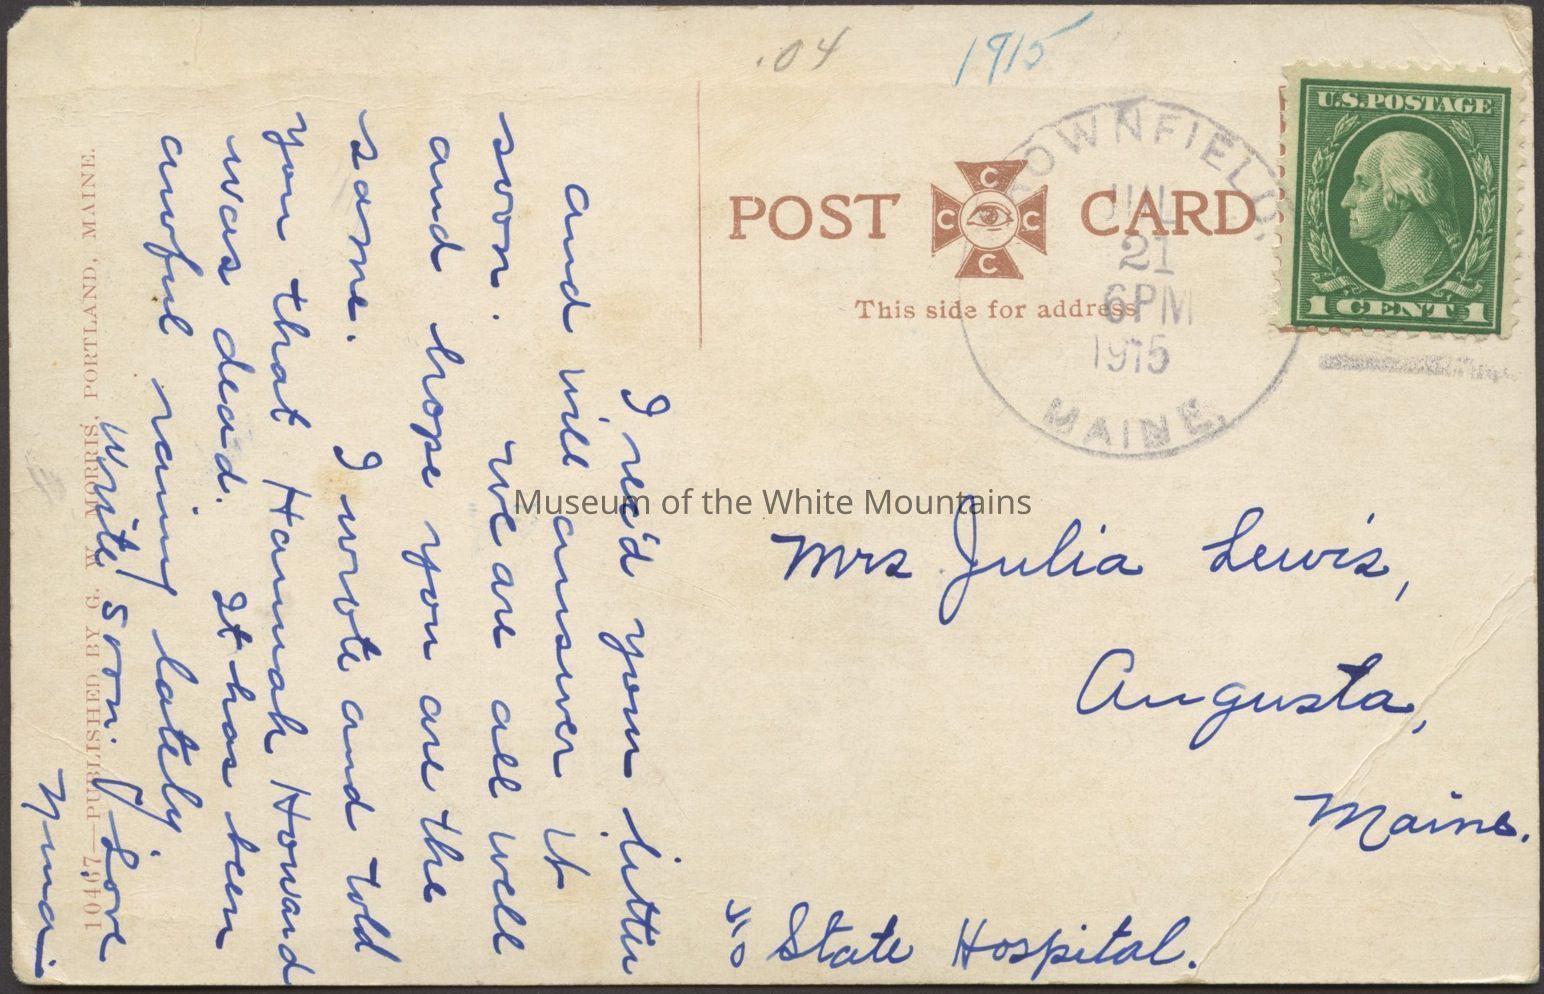 .04 1915
BROWNFIELD,
JUL
21
6PM
1915
MAINE.
U.S. POSTAGE
1 CENT 1
POST CARD
C C C C
This side for address
I rec'd your letter
and will answer it
soon. We are all well
and hope you are the
same. I wrote and told
you that Hannah Howard
was dead. It has been
awful rainy lately.
Write soon. Love
Mrs Julia Lewis,
Augusta,
Maine.
℅ State Hospital.
10467—PUBLISHED BY G. W. MORRIS, PORTLAND, MAINE.
Museum of the White Mountains